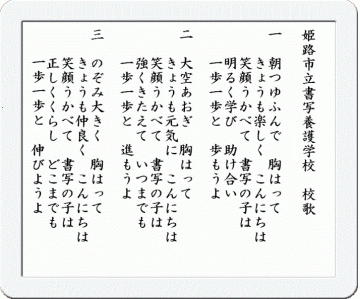 姫路市立書写養護学校　校歌
一　朝つゆふんで　胸はって
きょうも楽しく　こんにちは
笑顔うかべて　書写の子は
明るく学び　助け合い
一歩一歩と　歩もうよ
二　大空あおぎ　胸はって
きょうも元気に　こんにちは
笑顔うかべて　書写の子は
強くきたえて　いつまでも
一歩一歩と　進もうよ
三　のぞみ大きく　胸はって
きょうも仲良く　こんにちは
笑顔うかべて　書写の子は
正しくくらし　どこまでも
一歩一歩と　伸びようよ